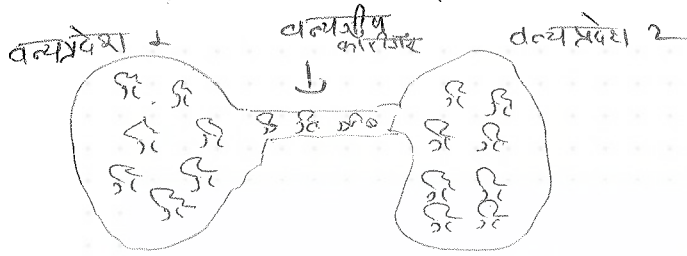 वन्यप्रदेश 1
वन्यजीव
कॉरिडॉर
वन्यप्रदेश 2